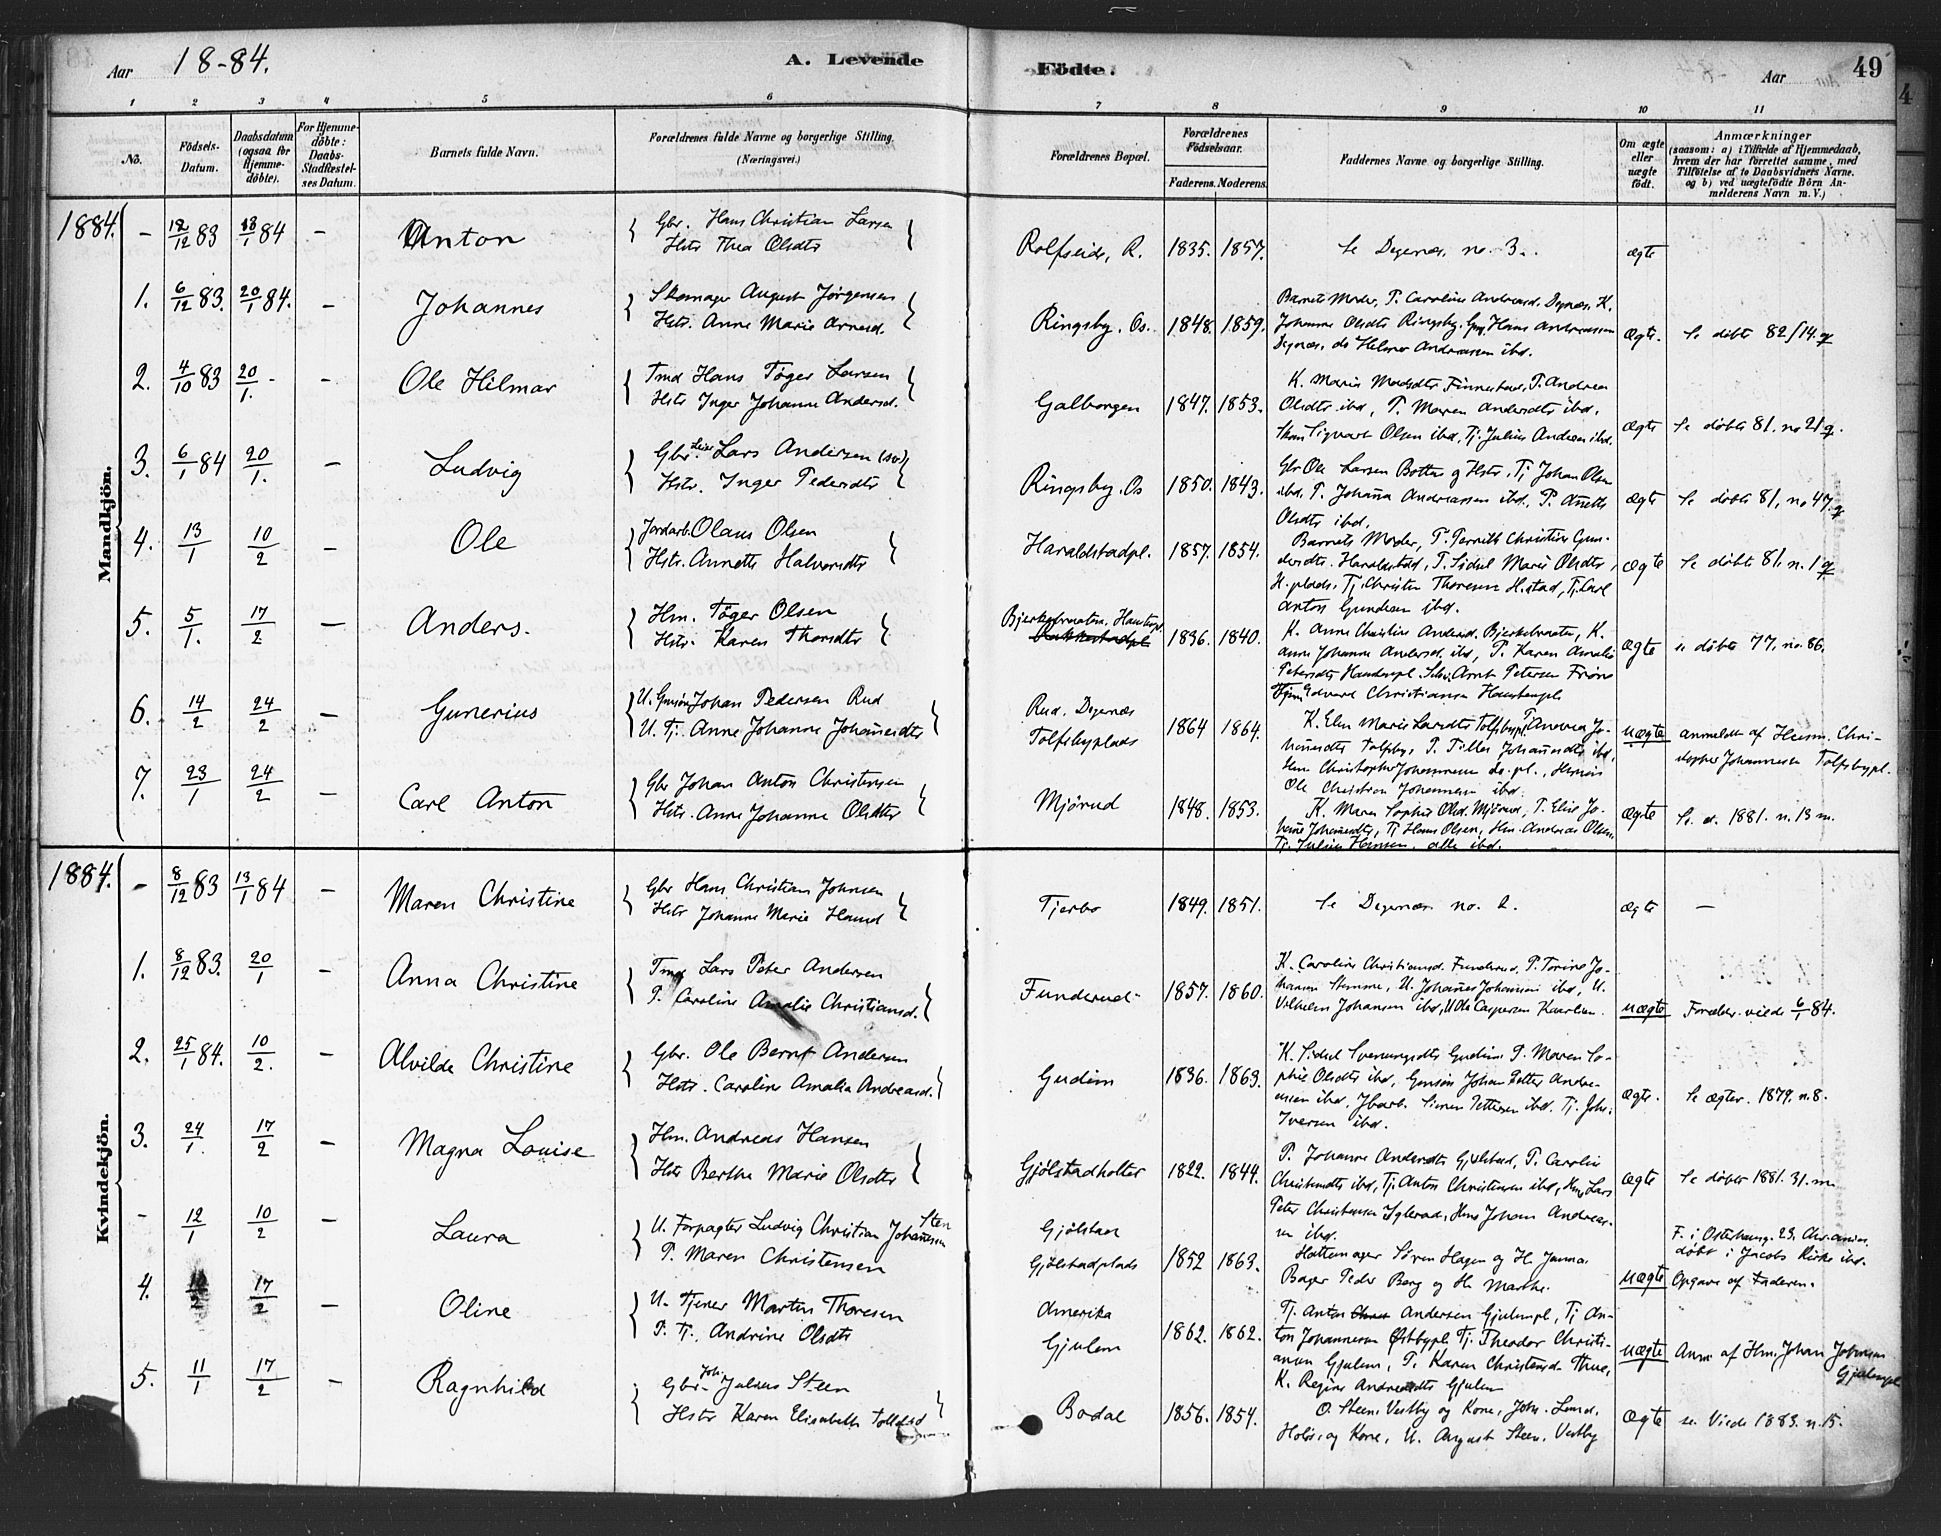 Aar 18-84. A. Levende Födte. Aar 49
1 2 3 4 5 6 7 8 9 10 11
No. Födsels-Datum. Daabsdatum (ogsaa for Hjemme-döbte). For Hjemme-döbte: Daabs-Stadfæstel-ses Datum. Barnets fulde Navn. Forældrenes fulde Navne og borgerlige Stilling. (Næringsvei.) Forældrenes Bopæl. Forældrenes Födselsaar. Faderens. Moderens. Faddernes Navne og borgerlige Stilling. Om ægte eller uægte födt. Anmærkninger (saasom: a) i Tilfælde af Hjemmedaab, hvem der har forrettet samme, med Tilföielse af to Daabsvidners Navne. og b) ved uægtefödte Börn An-melderens Navn m. V.)
Mandkjön.
1884. - 12/12 83 13/1 84 - Anton Gbr. Hans Christian Larsen
Hstr Thea Olsdtr Rolfseide, R. 1835. 1857. Se Degernæs no. 3. ægte
1. 6/12 83. 20/1 84. - Johannes Skomager August Jørgensen
Hstr. Anne Marie Arnesd. Ringsby. Os. 1848. 1859. Barnets Moder, P. Caroline Andreasd. Degnæs, K.
Johanne Olsdtr Ringsby, Hans Andreassen
Degnæs. do Helmer Andreassen ibd. Ægte. Se døbte 82/14.
2. 4/10 83 20/1. - - Ole Hilmar Tmd Hans Tøger Larsen
Hstr Inger Johanne Andersd. Galborgen 1847. 1853. K. Marie Madsdtr Finnestad, P. Andrea
Olsdtr ibd, P. Maren Andersdtr ibd,
Skom Sigvart Olsen ibd, Tj. Julius Andersen ibd. Ægte Se døbte 81. no 21
3. 6/1 84 20/1. - Ludvig Gbr. Lars Andersen
Hstr. Inger Pedersdtr Ringsby. Os 1850. 1843. Gbr Ole Larsen Botten og Hstr, Tj Johan Olsen
ibd. P. Johanna Andreassen ibd., P. Anette
Olsdtr ibd. Ægte Se døbte 81, no 47.
4. 13/1 10/2 - Ole Jordarb. Olaus Olsen
Hstr. Annette Halvorsdtr Haraldstadpl. 1857. 1854. Barnets Moder, P. Pernille Christine Gun-
dersdtr. Haraldstad, P. Sidsel Marie Olsdtr,
H.plads, Tj Christen Thoresen H.stad, Tj. Carl
Anton Gundersen ibd. Ægte Se døbte 81. n. 1
5. 5/1. 17/2 - Anders. Hm. Tøger Olsen
Hstr. Karen Thorsdtr Bjerkebraaten, 1836. 1840. K. Anne Christine Andersd. Bjerkebraaten, K.
Anne Johanne Andersd. ibd, P. Karen Amalie
Petersdtr Arnt Petersen
Edvard Christiansen Ægte se døbte 77. no. 86.
6. 14/2 24/2 - Gunerius U. Johan Pedersen Rud
U. Tj. Anne Johanne Johannesdtr Rud. Degernæs
Tolfsbyplads 1864 1864. K. Elen Marie Larsdtr Tolfsbypl, P. Andrea Jo-
hannesdtr Tolfsby, P. Johannesdtr ibd,
Hm Christopher Johannesen do. pl.,
Ole Christian Johannesen ibd. uægte anmeldt af Husm. Chri-
stopher Johannesen Tolfsbypl.
7. 23/1 24/2 - Carl Anton Gbr Johan Anton Christensen
Hstr. Anne Johanne Olsdtr Mjørud 1848. 1853. K. Maren Sophie Olsd. Mjørud, P. Elise Jo-
hanne Johannesdtr, Tj Hans Olsen, Hm. Andreas Olsen,
Tj. Julius Hansen. alle ibd. Ægte Se. d. 1881. n. 13 m.
Kvindekjön.
1884. - 8/12 83 13/1 84 - Maren Christine Gbr Hans Christian Johnsen
Hstr Johanne Marie Hansd Tjerbo 1849. 1851. Se Degernæs no. 2. Ægte -
1. 8/12 83. 20/1 - Anna Christine Tmd Lars Peter Andersen
P. Caroline Amalie Christiansd. Funderud 1857. 1860. K. Caroline Christiansd. Funderud, P. Torine Jo-
hansen Stemme, U. Johannes Johansen ibd, U.
Vilhelm Johansen ibd, U Ole Caspersen uægte Forældr. viede 6/1 84.
2. 25/1 84. 10/2. - Alvilde Christine Gbr. Ole Bernt Andersen
Hstr. Caroline Amalia Andreasd. Gudim 1836. 1863. K. Sidsel Gudim P. Maren So-
phie Olsdtr ibd, Johan Petter Andre-
assen ibd, Simen Pettersen ibd. Tj. Joh.
Iversen ibd. Ægte. Se ægtev. 1879. n. 8.
3. 24/1. 17/2 - Magna Louise Hm. Andreas Hansen
Hstr Berthe Marie Olsdtr Gjølstadholter 1822. 1844. P. Johanne Andersdtr Gjølstad, P. Caroline
Christensdtr ibd, Tj. Anton Christensen ibd, Lars
Peter Christensen Johan Andreas-
sen ibd. Ægte Se døbte 1881. 31. m
- 12/1 10/2 - Laura U. Forpagter Ludvig Christian Johannesen Sten
P. Maren Christensen Gjølstad
Gjølstadplads 1852 1863. Hattemager Søren Hagen og H. Janna.
Bager Peder Berg og Hr Marthe. uægte F. i Østerhaug. 23. Chr.ania.
døbt i Jacobs Kirke ibd.
Opgave af Faderen.
4. 17/2 - Oline U. Tjener Martin Thoresen
P. Tj. Andrine Olsdtr Amerika
Gjulem 1862. 1862. Tj. Anton Andersen Gjulempl, Tj An-
ton Johannesen Østbypl. Tj. Theodor Christi-
ansen Gjulem, P. Karen Christensd. Thue,
K. Regine Andreasdtr Gjulem uægte Anm. af Hm. Johan Johnsen
Gjulempl
5. 11/1 17/2 - Ragnhild Gbr. Joh. Julius Steen
Hstr Karen Elisabeth Tollefsd Bodal 1856. 1854. O. Steen. Vestby og Kone, Joh. Lund,
Holøs og Kone, U. August Steen. Vestby Ægte se Viede 1883. n. 15.